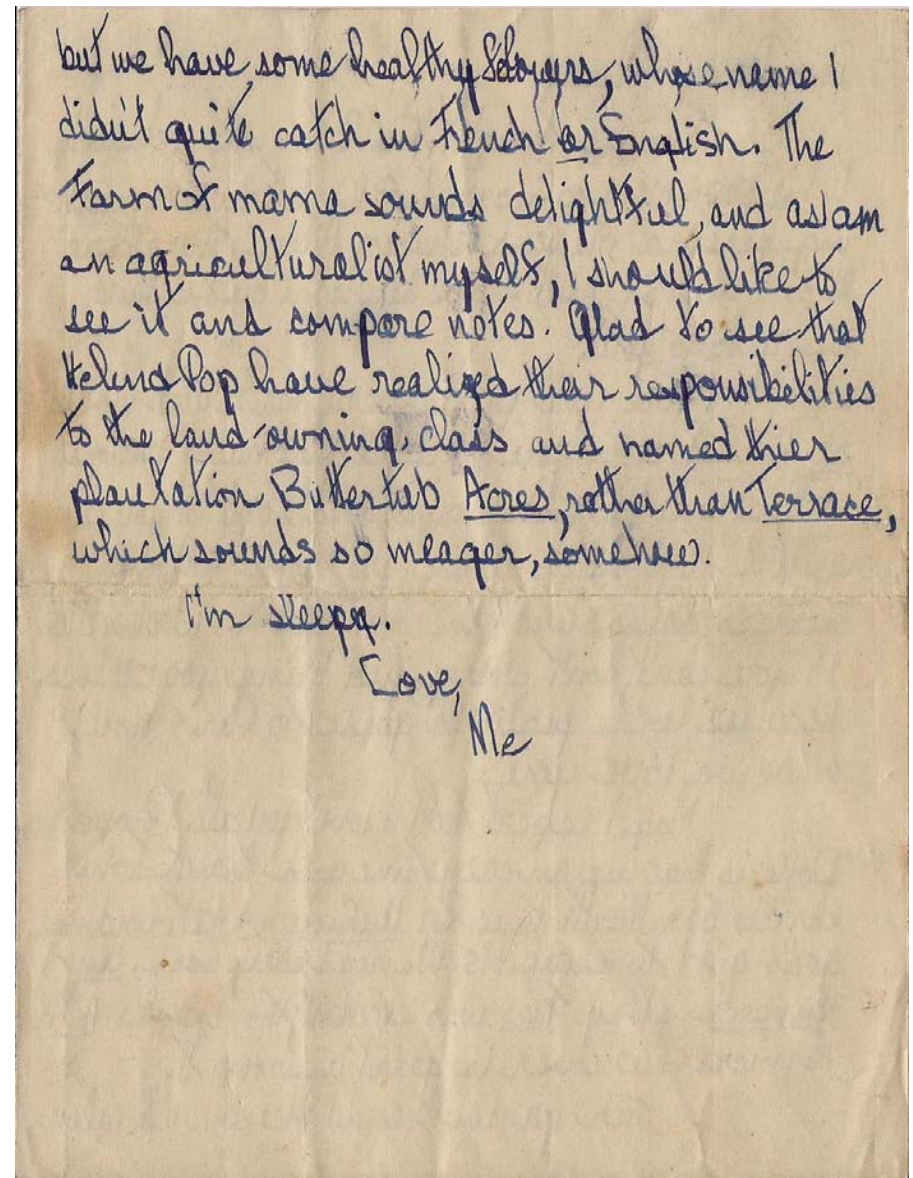 but we have some healthy flowers, whose name I
didn't quite catch in French or English. The
Farm of mama sounds delightful, and as I am
an agriculturalist myself, I should like to
see it and compare notes. Glad to see that
and Pop have realized their responsibilities
to the land-owning class and named thier
plantation Buttertub Acres, rather than Terrace,
which sounds so meager, somehow.
I'm sleepy.
Love,
Me